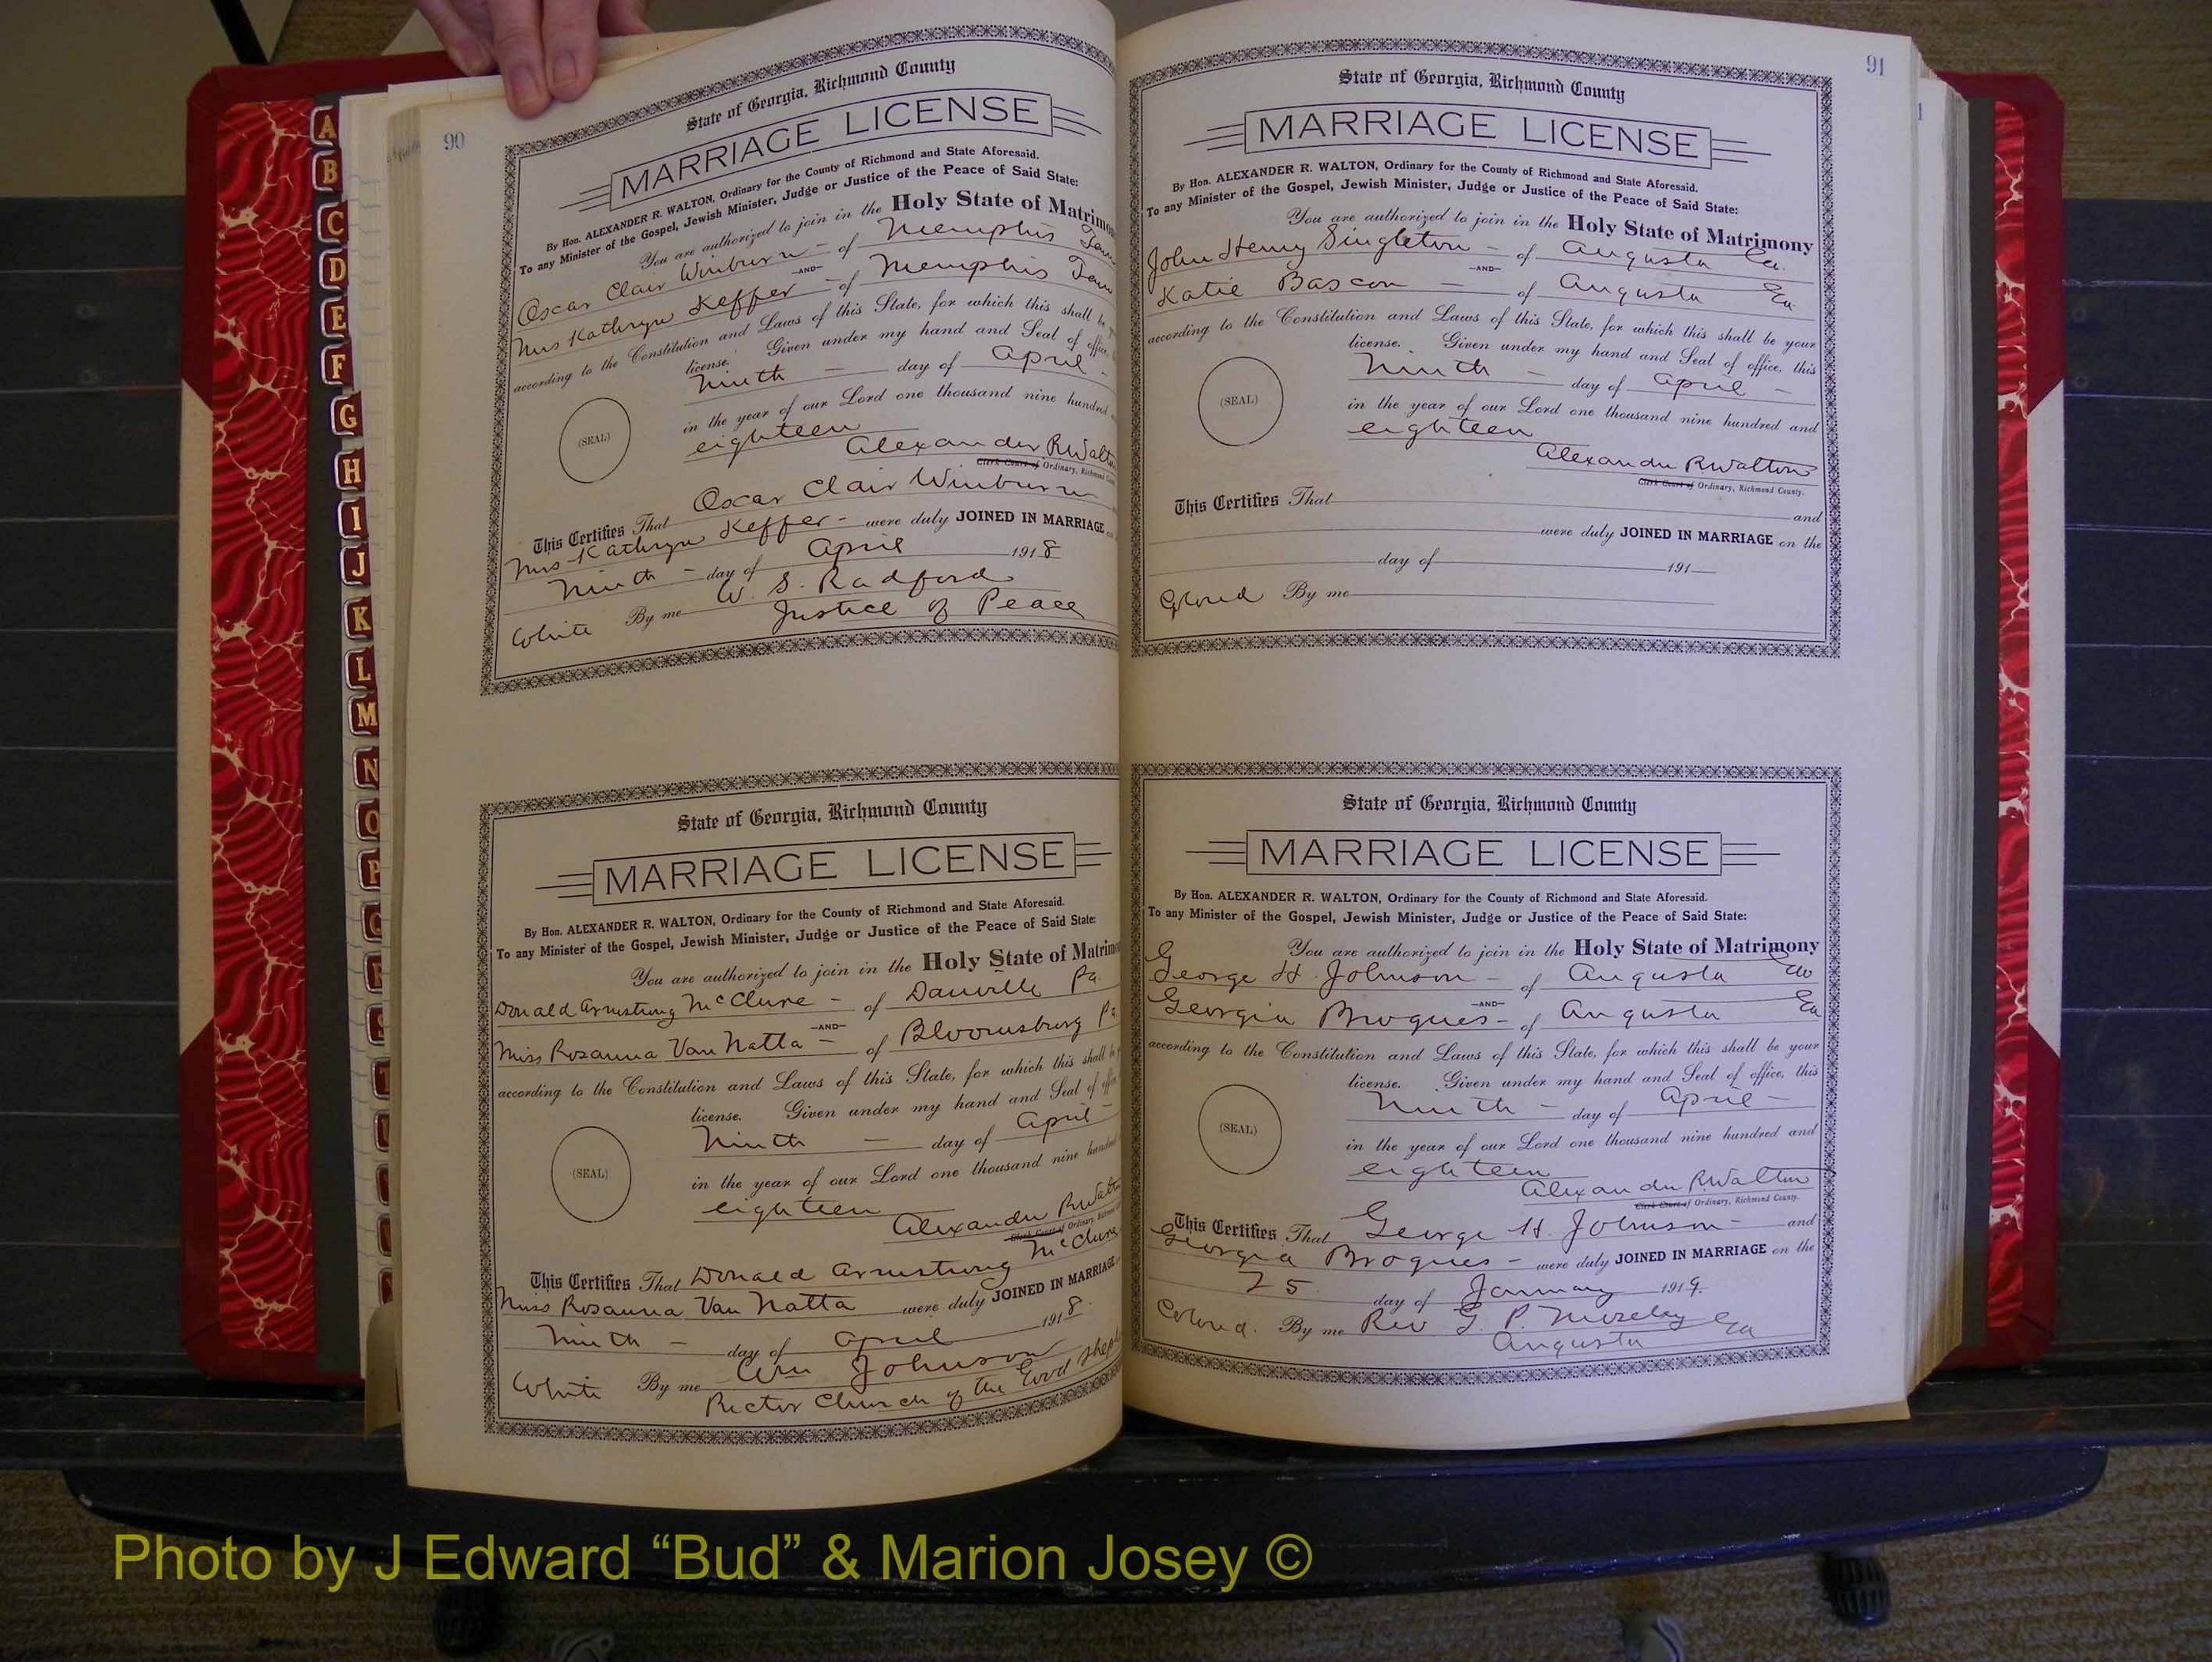 90
State of Georgia, Richmond County
MARRIAGE LICENSE
By Hon. ALEXANDER R. WALTON, Ordinary for the County of Richmond and State Aforesaid.
To any Minister of the Gospel, Jewish Minister, Judge or Justice of the Peace of Said State:
You are authorized to join in the Holy State of Matrimo
Oscar Clair Winburn - of Memphis Tenn
-AND-
Kathryn Keffer - of Memphis Tenn
according to the Constitution and Laws of this State, for which this shall be
license. Given under my hand and Seal of office,
Ninth - day of April -
(SEAL)
in the year of our Lord one thousand nine hundred
eighteen
Alexander R Walton
Clerk Court of Ordinary, Richmond
This Certifies That Oscar Clair Winburn
Kathryn Keffer - were duly JOINED IN MARRIAGE
Ninth - day of April 1918
By me W. S. Radford
White Justice of Peace
State of Georgia, Richmond County
MARRIAGE LICENSE
By Hon. ALEXANDER R. WALTON, Ordinary for the County of Richmond and State Aforesaid.
To any Minister of the Gospel, Jewish Minister, Judge or Justice of the Peace of Said State:
You are authorized to join in the Holy State of Matrimo
Donald Armstrong McClure - of Danville Pa.
-AND-
Miss Rosanna Van Natta - of Bloomsburg Pa
according to the Constitution and Laws of this State, for which this shall be
license. Given under my hand and Seal of
Ninth - day of April -
(SEAL)
in the year of our Lord one thousand nine hundred
eighteen
Alexander R Walton
Clerk Court of Ordinary, Richmond
This Certifies That Donald Armstrong McClure
Miss Rosanna Van Natta were duly JOINED IN MARRIAGE
Ninth - day of April 1918.
White By me Wm Johnson
Rector Church of the Good Sheph
91
State of Georgia, Richmond County
MARRIAGE LICENSE
By Hon. ALEXANDER R. WALTON, Ordinary for the County of Richmond and State Aforesaid.
To any Minister of the Gospel, Jewish Minister, Judge or Justice of the Peace of Said State:
You are authorized to join in the Holy State of Matrimony
John Henry Singleton - of Augusta Ga.
-AND-
Katie Bascon - of Augusta Ga.
according to the Constitution and Laws of this State, for which this shall be your
license. Given under my hand and Seal of office, this
Ninth - day of April -
(SEAL)
in the year of our Lord one thousand nine hundred and
eighteen
Alexander R Walton
Clerk Court of Ordinary, Richmond County.
This Certifies That and
were duly JOINED IN MARRIAGE on the
day of 191
Colored By me
State of Georgia, Richmond County
MARRIAGE LICENSE
By Hon. ALEXANDER R. WALTON, Ordinary for the County of Richmond and State Aforesaid.
To any Minister of the Gospel, Jewish Minister, Judge or Justice of the Peace of Said State:
You are authorized to join in the Holy State of Matrimony
George H. Johnson - of Augusta Ga
-AND-
Georgia Brogues - of Augusta Ga
according to the Constitution and Laws of this State, for which this shall be your
license. Given under my hand and Seal of office, this
Ninth - day of April -
(SEAL)
in the year of our Lord one thousand nine hundred and
eighteen
Alexander R. Walton
Clerk Court of Ordinary, Richmond County.
This Certifies That George H. Johnson - and
Georgia Brogues - were duly JOINED IN MARRIAGE on the
25 day of January 1919.
Colored. By me Rev G. P. Mozeley
Augusta Ga
A
B
C
D
E
F
G
H
I
J
K
L
M
N
O
P
Q
R
S
T
Photo by J Edward “Bud” & Marion Josey ©